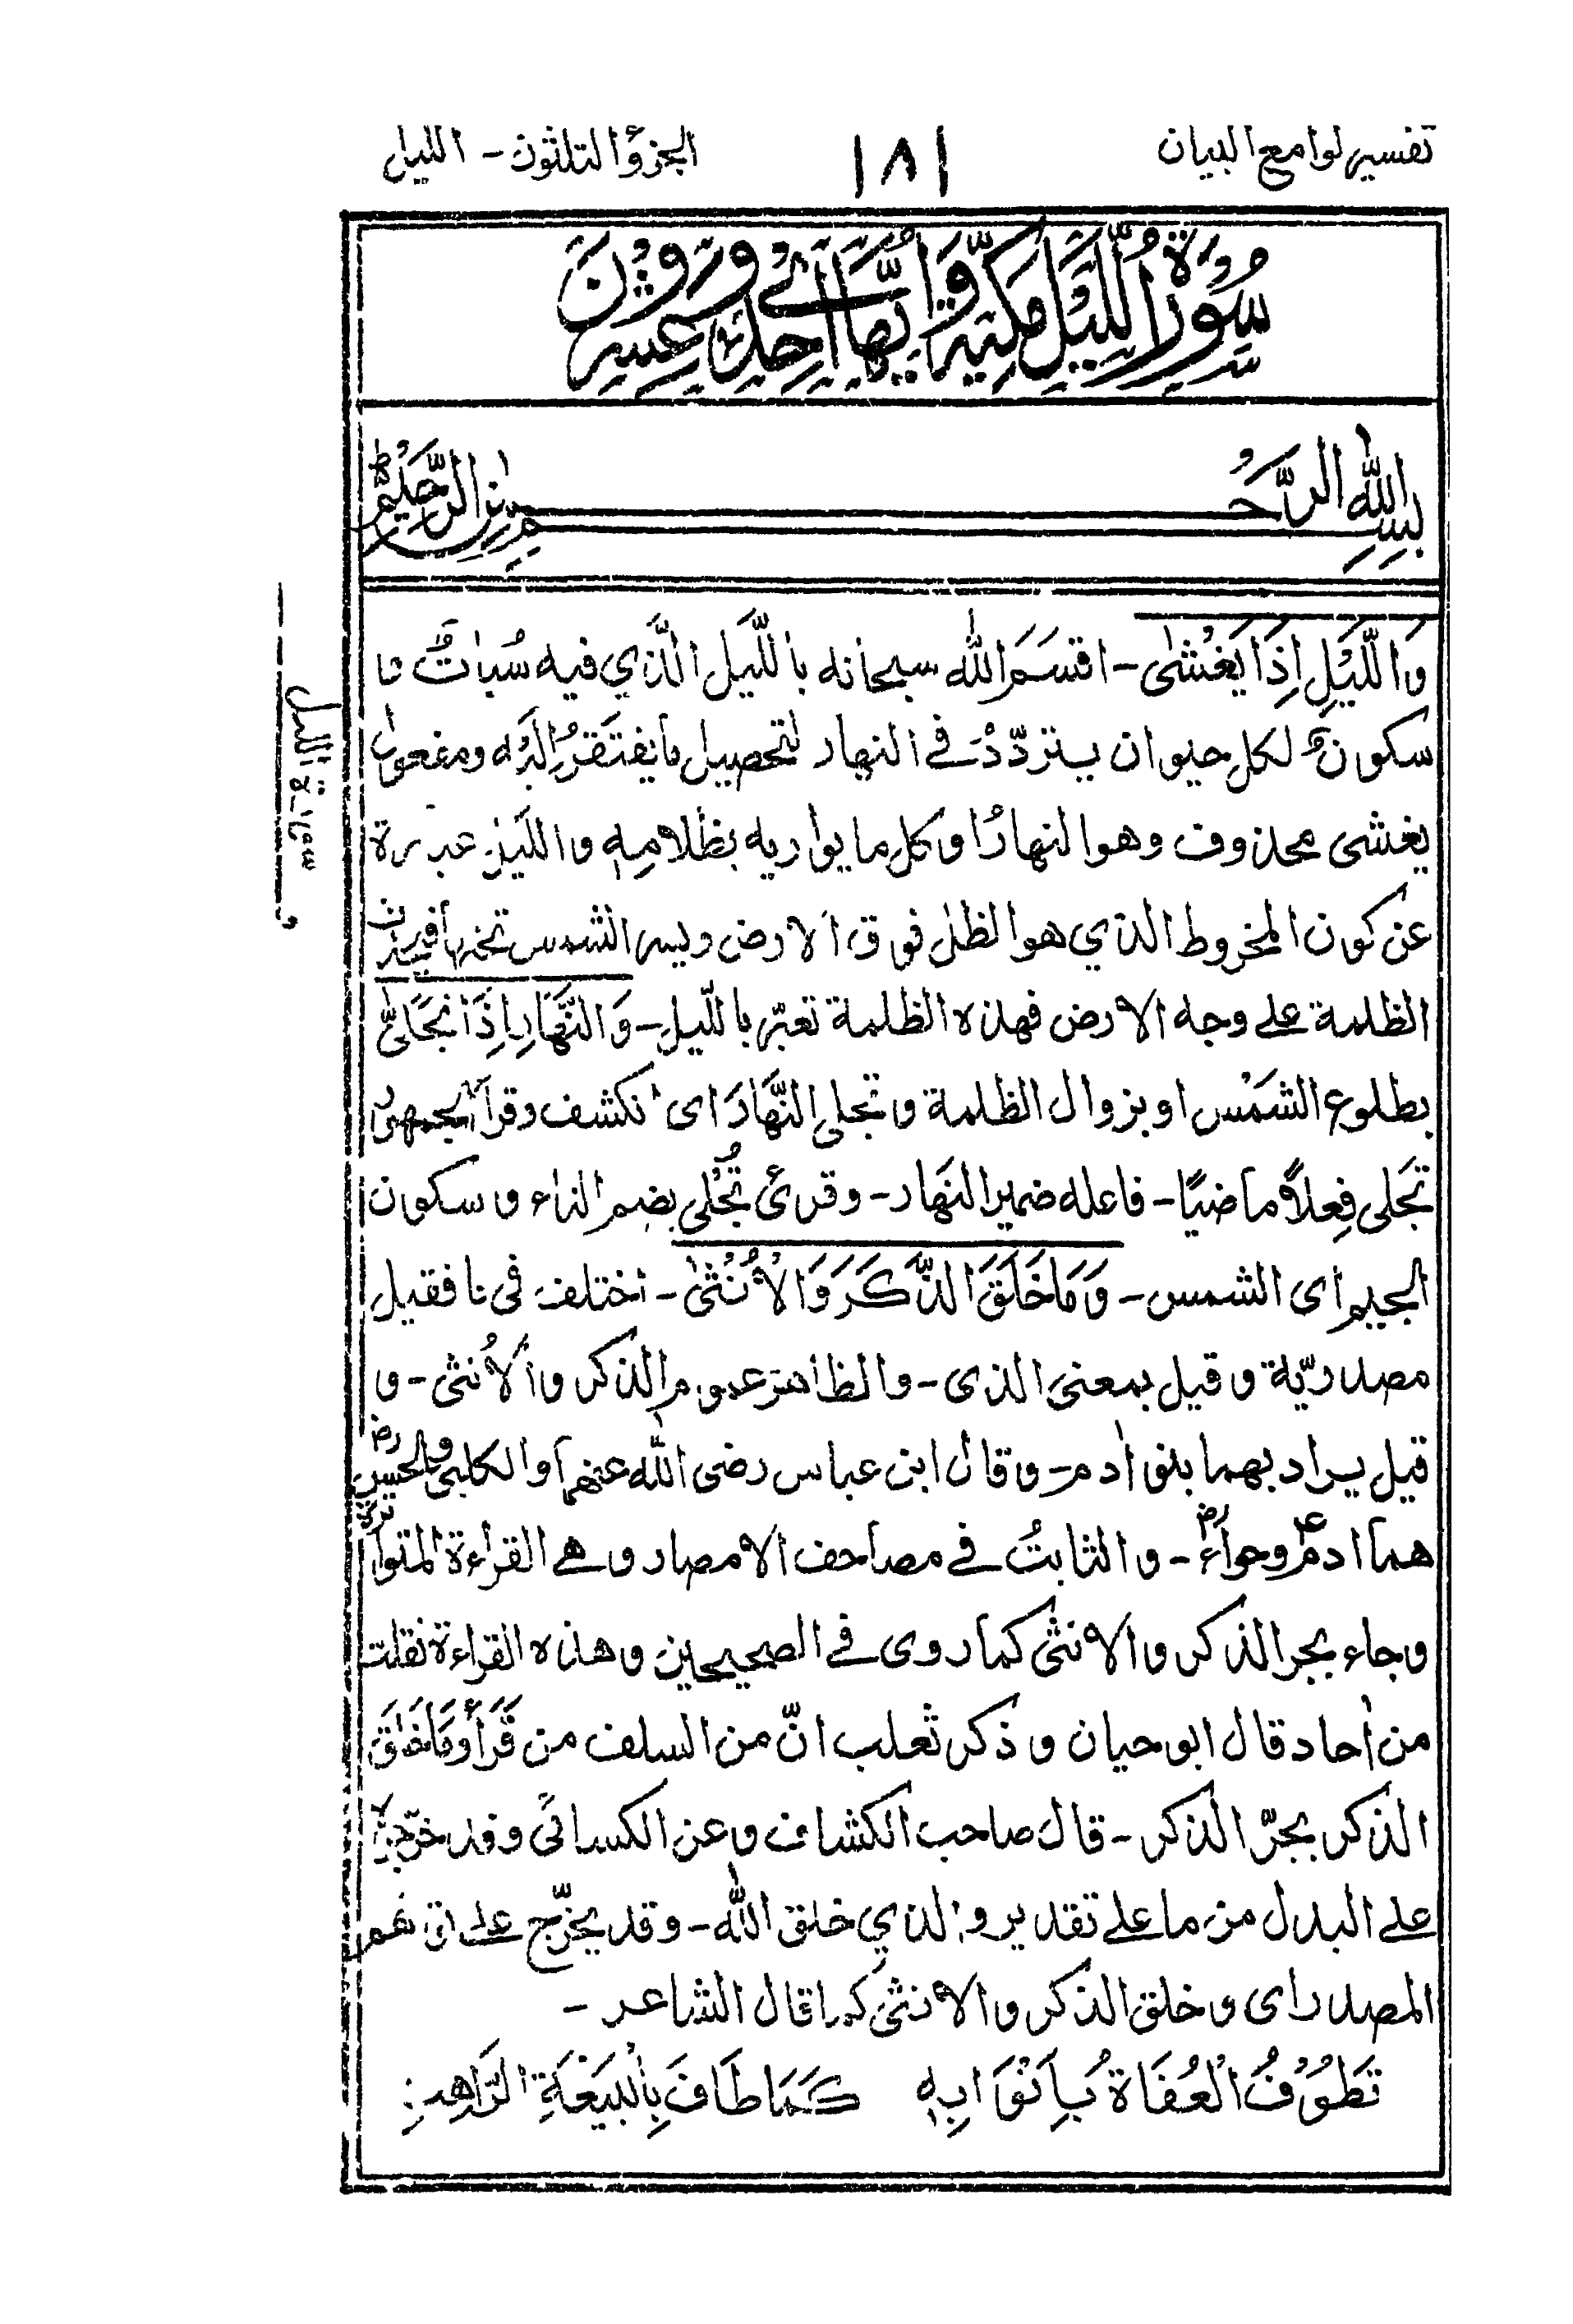 تفسير لوامع البيان
١٨١
الجزؤ الثلثون - الليل
سُوْرَةُ اللَّيْلِ مَكِّيَّةٌ وَّاٰيُهَا اِحْدٰى وَعِشْرُوْنَ
بِسْمِ اللهِ الرَّحْمٰنِ الرَّحِيْمِ
وَاللَّيْلِ اِذَا يَغْشٰى - اقتسَمَ الله سبحانه باللَّيل الَّذي فيه سُباتٌ ما
سكون لكل حيوان يتردّدُ في النهار لتحصيل ما يفتَقرُ اِلَيْه ومفعول
يغشى محذوف وهو النهارُ او كل ما يواريه بظلامِهٖ والليل عبارة
عن كون المخروط الذي هو الظل فوق الارض ويسير الشمس تحتها
الظلمة على وجه الارض فهذه الظلمة تعبّر بالليل - وَالنَّهَارِ اِذَا تَجَلّٰى
بطلوع الشمْس او بزوال الظلمة وتجلى النَّهَار اى انكشف وقرأ الجمهور
تَجَلى فِعلاً ماضيًا - فاعله ضمير النَهار - وقرئ تُجْلى بضم التاء وسكون
الجيم اى الشمس - وَمَا خَلَقَ الذَّكَرَ وَالْاُنْثٰى - اختلف فى ما فقيل
مصدريّة وقيل بمعنى الذى - والظاهر عموم الذكر والاُنثى - و
قيل يراد بهما بنو اٰدم - وقال ابن عباس رضى الله عنهما والكلبى والحسن رض
هما ادم ع وحواء رض - والثابتُ في مصاحف الامصار وهي القراءة المتواترة
وجاء بجر الذكر والانثى كما روى في الصحيحين وهذه القراءة نقلت
من اٰحاد قال ابو حيان وذكر ثعلب انّ من السلف من قَرَأَ وَمَا خَلَقَ
الذكر بجرّ الذكر - قال صاحب الكشاف وعن الكسائى وقد خرّجوا
على البدل من ما على تقدير والذي خلق الله - وقد يخرّج على توهم
المصدر اى وخلق الذكر والانثى كما قال الشاعر -
تَطُوْفُ الْعُفَاةُ بِاَبْوَابِهٖ كَمَا طَافَ بِالْبِيْعَةِ الرَّاهِبُ
سورة الليل